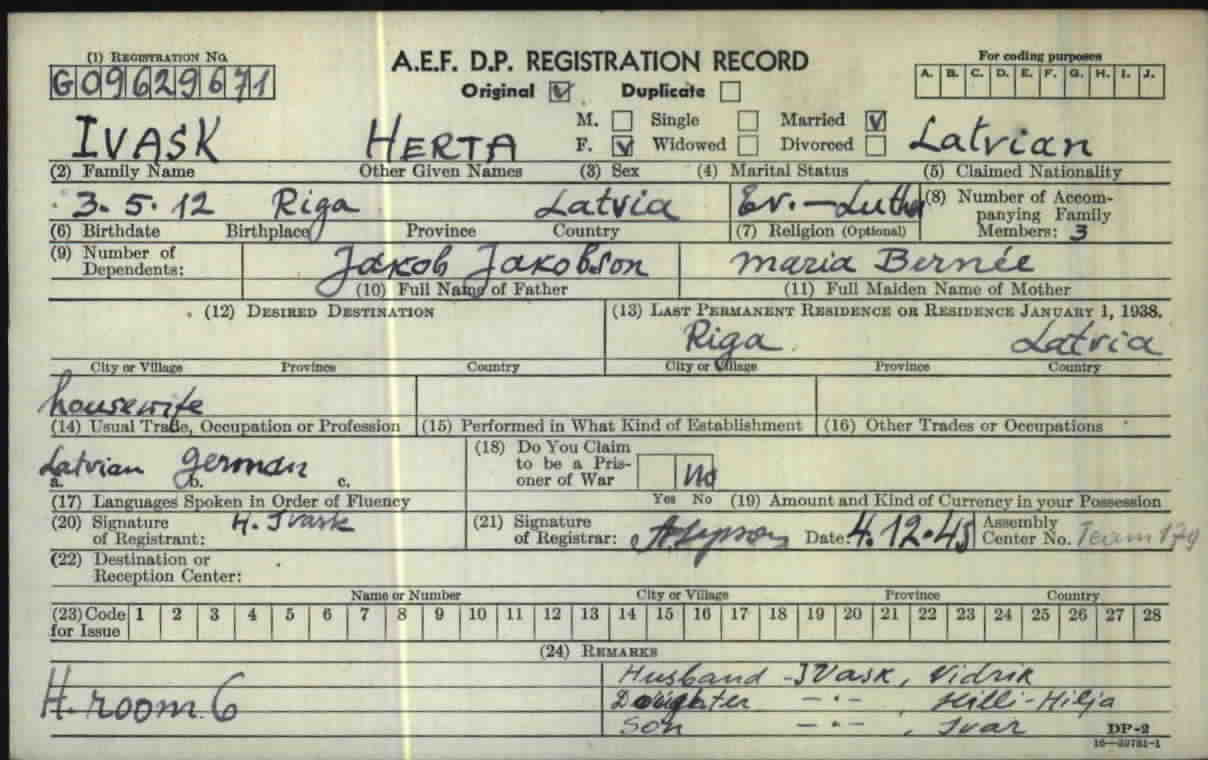 (1) REGISTRATION NO. A.E.F. D.P. REGISTRATION RECORD For coding purposes
G09629671 Original ☑ Duplicate ☐ A. B. C. D. E. F. G. H. I. J.
IVASK HERTA M. ☐ Single ☐ Married ☑ Latvian
F. ☑ Widowed ☐ Divorced ☐
(2) Family Name Other Given Names (3) Sex (4) Marital Status (5) Claimed Nationality
3. 5. 12 Riga Latvia Ev. - Luth (8) Number of Accom-
panying Family
(6) Birthdate Birthplace Province Country (7) Religion (Optional) Members: 3
(9) Number of
Dependents: Jakob Jakobson Maria Bernée
(10) Full Name of Father (11) Full Maiden Name of Mother
(12) DESIRED DESTINATION (13) LAST PERMANENT RESIDENCE OR RESIDENCE JANUARY 1, 1938.
Riga Latvia
City or Village Province Country City or Village Province Country
housewife
(14) Usual Trade, Occupation or Profession (15) Performed in What Kind of Establishment (16) Other Trades or Occupations
Latvian german (18) Do You Claim
to be a Pris-
oner of War No
a. b. c.
(17) Languages Spoken in Order of Fluency Yes No (19) Amount and Kind of Currency in your Possession
(20) Signature
of Registrant: H. Ivask (21) Signature
of Registrar: Date: 4.12.45 Assembly
Center No. Team 179
(22) Destination or
Reception Center:
Name or Number City or Village Province Country
(23) Code
for Issue 1 2 3 4 5 6 7 8 9 10 11 12 13 14 15 16 17 18 19 20 21 22 23 24 25 26 27 28
(24) REMARKS
H. room. 6
Husband - IVask, Vidrik
Daughter - " - , Hilli-Hilja
Son - " - , Ivar
DP-2
16-39781-1